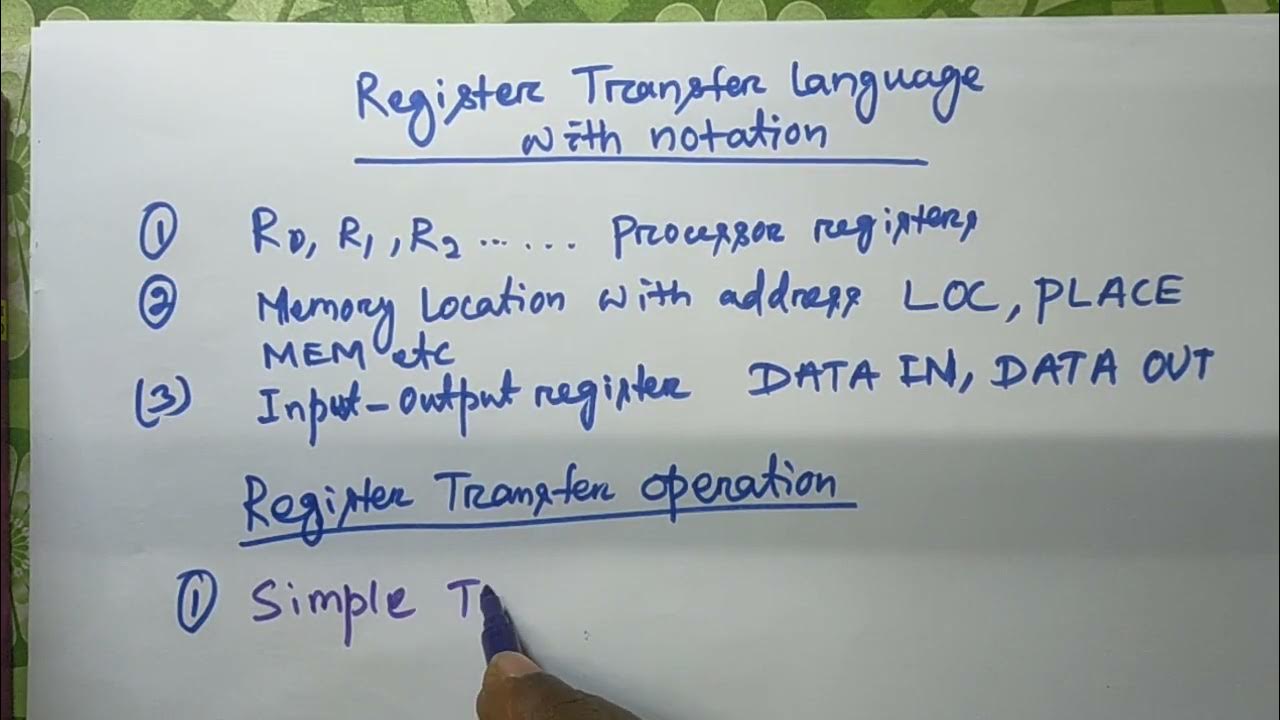 Register Transfer Language
with notation
① R0, R1, R2 ...... Processor registers
② Memory Location with address LOC, PLACE
MEM etc
(3) Input-Output register DATA IN, DATA OUT
Register Transfer operation
① Simple T